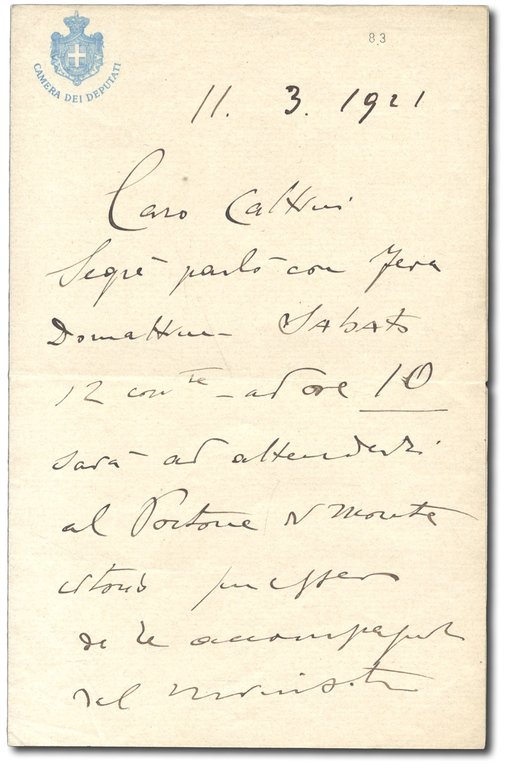 83
CAMERA DEI DEPUTATI
11. 3. 1921
Caro Cattini
Segrè parlò con Fera
Domattina Sabato
12 corr te - ad ore 10
sarà ad attenderti
al Portone di Monte
citorio per essere
da te accompagnato
dal Ministro